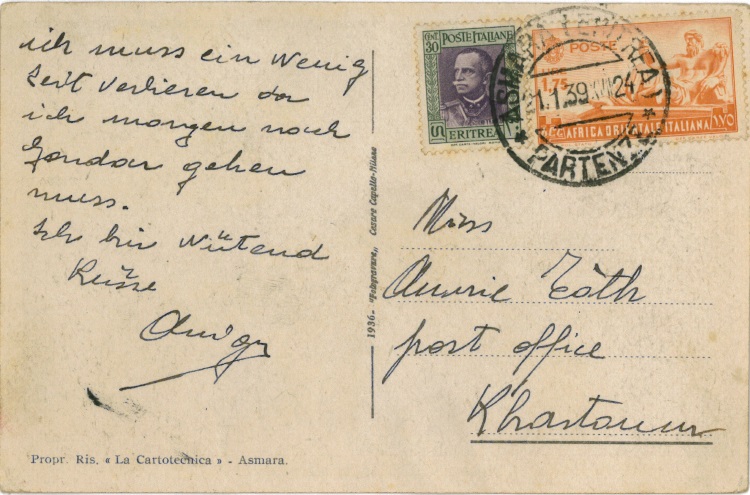 ich muss ein wenig
Zeit verlieren da
ich morgen nach
Gondar gehen
muss.
Ich bin wütend
Küsse
CENT. 30
POSTE ITALIANE
ERITREA
POSTE
1,75
AFRICA ORIENTALE ITALIANA
ASMARA (ERITREA)
1.1.39 XVII 24
* PARTENZA *
Miss
Tóth
post office
Khartoum
1936 - "Fotogravure" Cesare Capello - Milano
Propr. Ris. « La Cartotecnica » - Asmara.